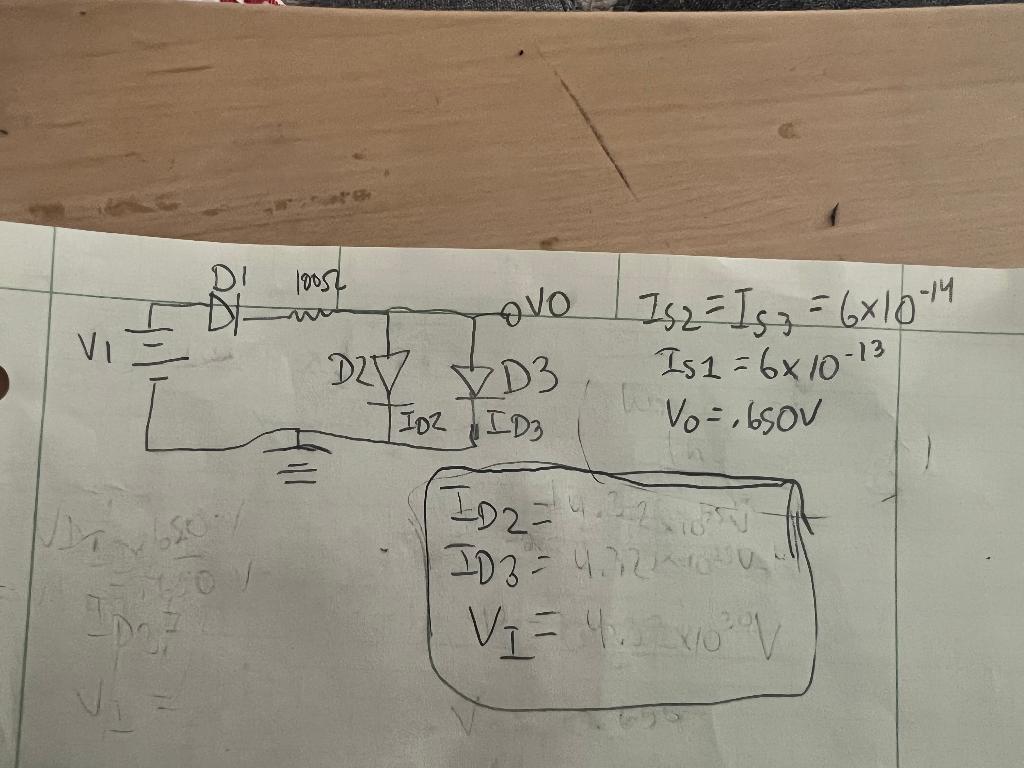 D1
100Ω
VO
V1
D2
D3
ID2
ID3
IS2 = IS3 = 6x10^-14
IS1 = 6x10^-13
Vo = .650V
ID2 =
ID3 =
VI =
VI =